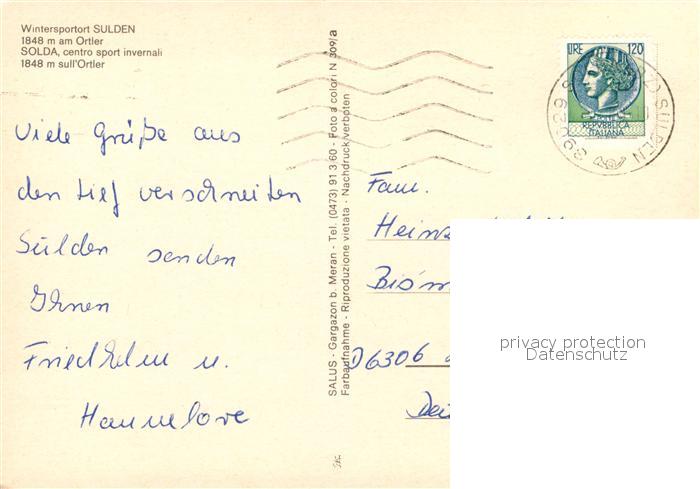 Wintersportort SULDEN
1848 m am Ortler
SOLDA, centro sport invernali
1848 m sull'Ortler
Viele Grüße aus
den tief verschneiten
Sulden senden
Ihnen
Friedhelm u.
Hannelore
SALUS - Gargazon b. Meran - Tel. (0473) 91 3 60 - Foto a colori N 309/a
Farbaufnahme - Riproduzione vietata - Nachdruck verboten
LIRE 120
REPVBBLICA
ITALIANA
SULDEN
Fam.
Heinz
D6306
privacy protection
Datenschutz